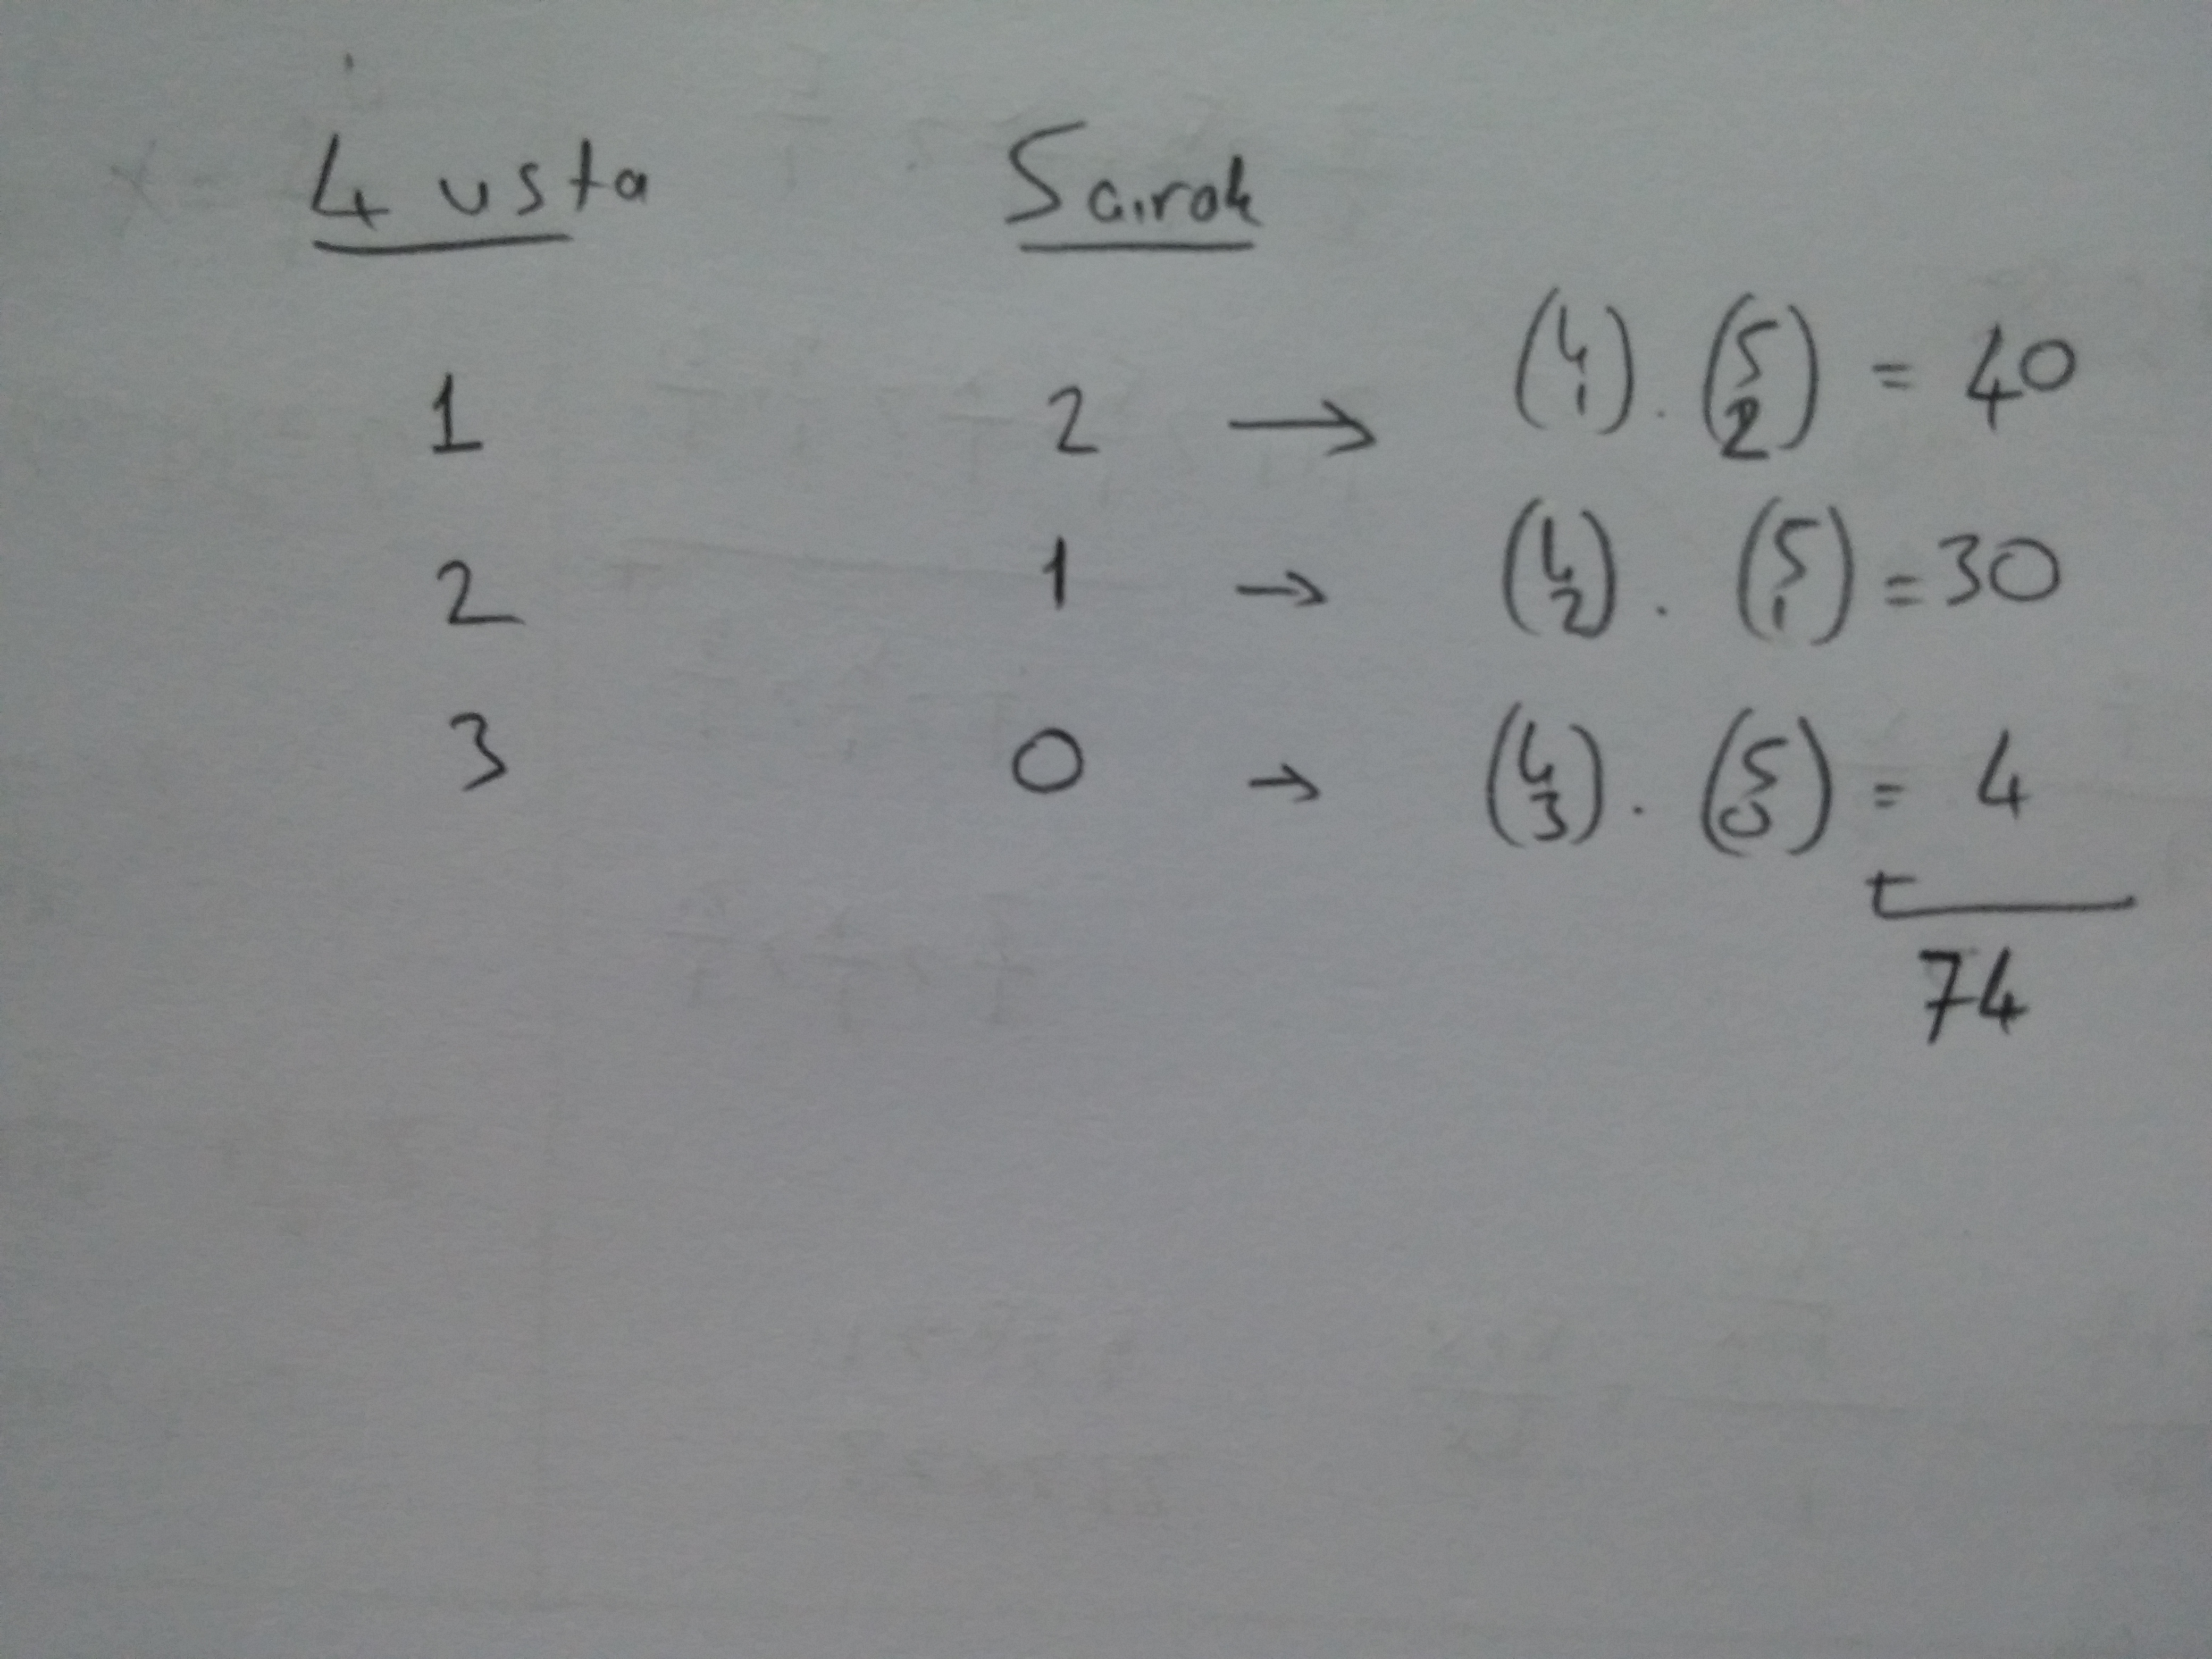 4 usta 5 çırak
1 2 → (4 1) . (5 2) = 40
2 1 → (4 2) . (5 1) = 30
3 0 → (4 3) . (5 0) = 4
+
74